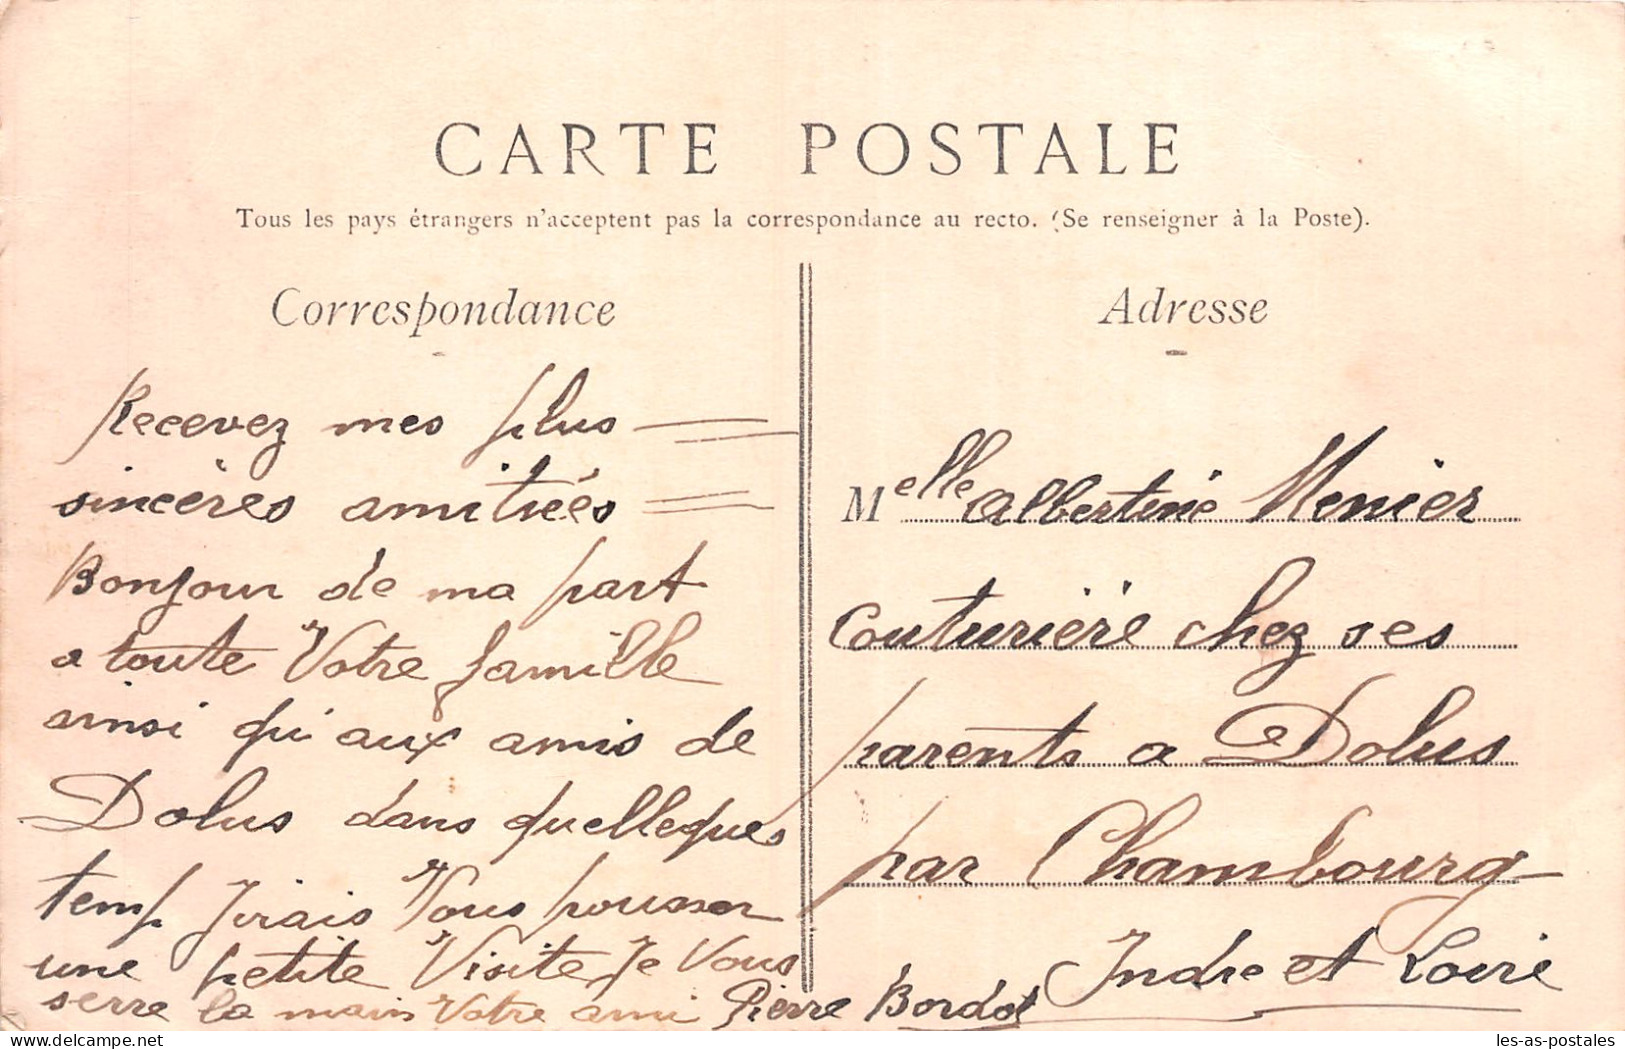 CARTE POSTALE
Tous les pays étrangers n'acceptent pas la correspondance au recto. (Se renseigner à la Poste).
Correspondance
Recevez mes plus
sincères amitiées
Bonjour de ma part
a toute Votre famille
ainsi qu'aux amis de
Dolus dans quelleques
temp J'irais Vous pousser
une petite Visite Je Vous
serre la main Votre ami Pierre Bordot
Adresse
Melle Albertine Menier
Couturière chez ses
parents a Dolus
par Chambourg
Indre et Loire
delcampe.net
les-as-postales